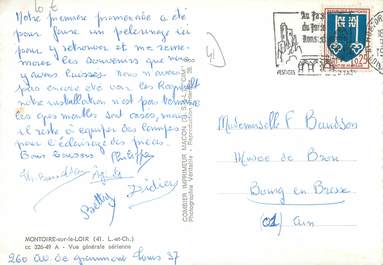 10 €
Notre première promenade a été
pour faire un pèlerinage ici
pour y retrouver et me remé-
morer les souvenirs que nous
y avons laissés. Nous n'avons
pas encore été voir les
notre installation n'est pas terminée
les gros meubles sont casés, mais
il reste à équiper des lampes
pour l'éclairage des pièces.
Bons baisers Philippe
Agnès
Betty Didier
MONTOIRE-sur-le-LOIR (41. L.-et-Ch.)
cc 326-49 A - Vue générale aérienne
260 av. de grammont Tours 37
COMBIER IMPRIMEUR MACON (S.-et-L.) "CIM"
Photographie Véritable - Reproduction
41
VESTIGES
0,25
Mademoiselle F Baudson
Musée de Brou
Bourg en Bresse
(01) Ain